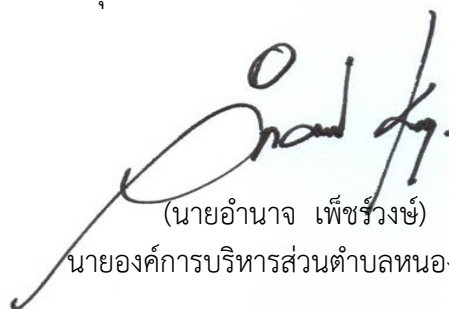 (นายอำนาจ เพ็ชร์วงษ์)
นายองค์การบริหารส่วนตำบลหนอง